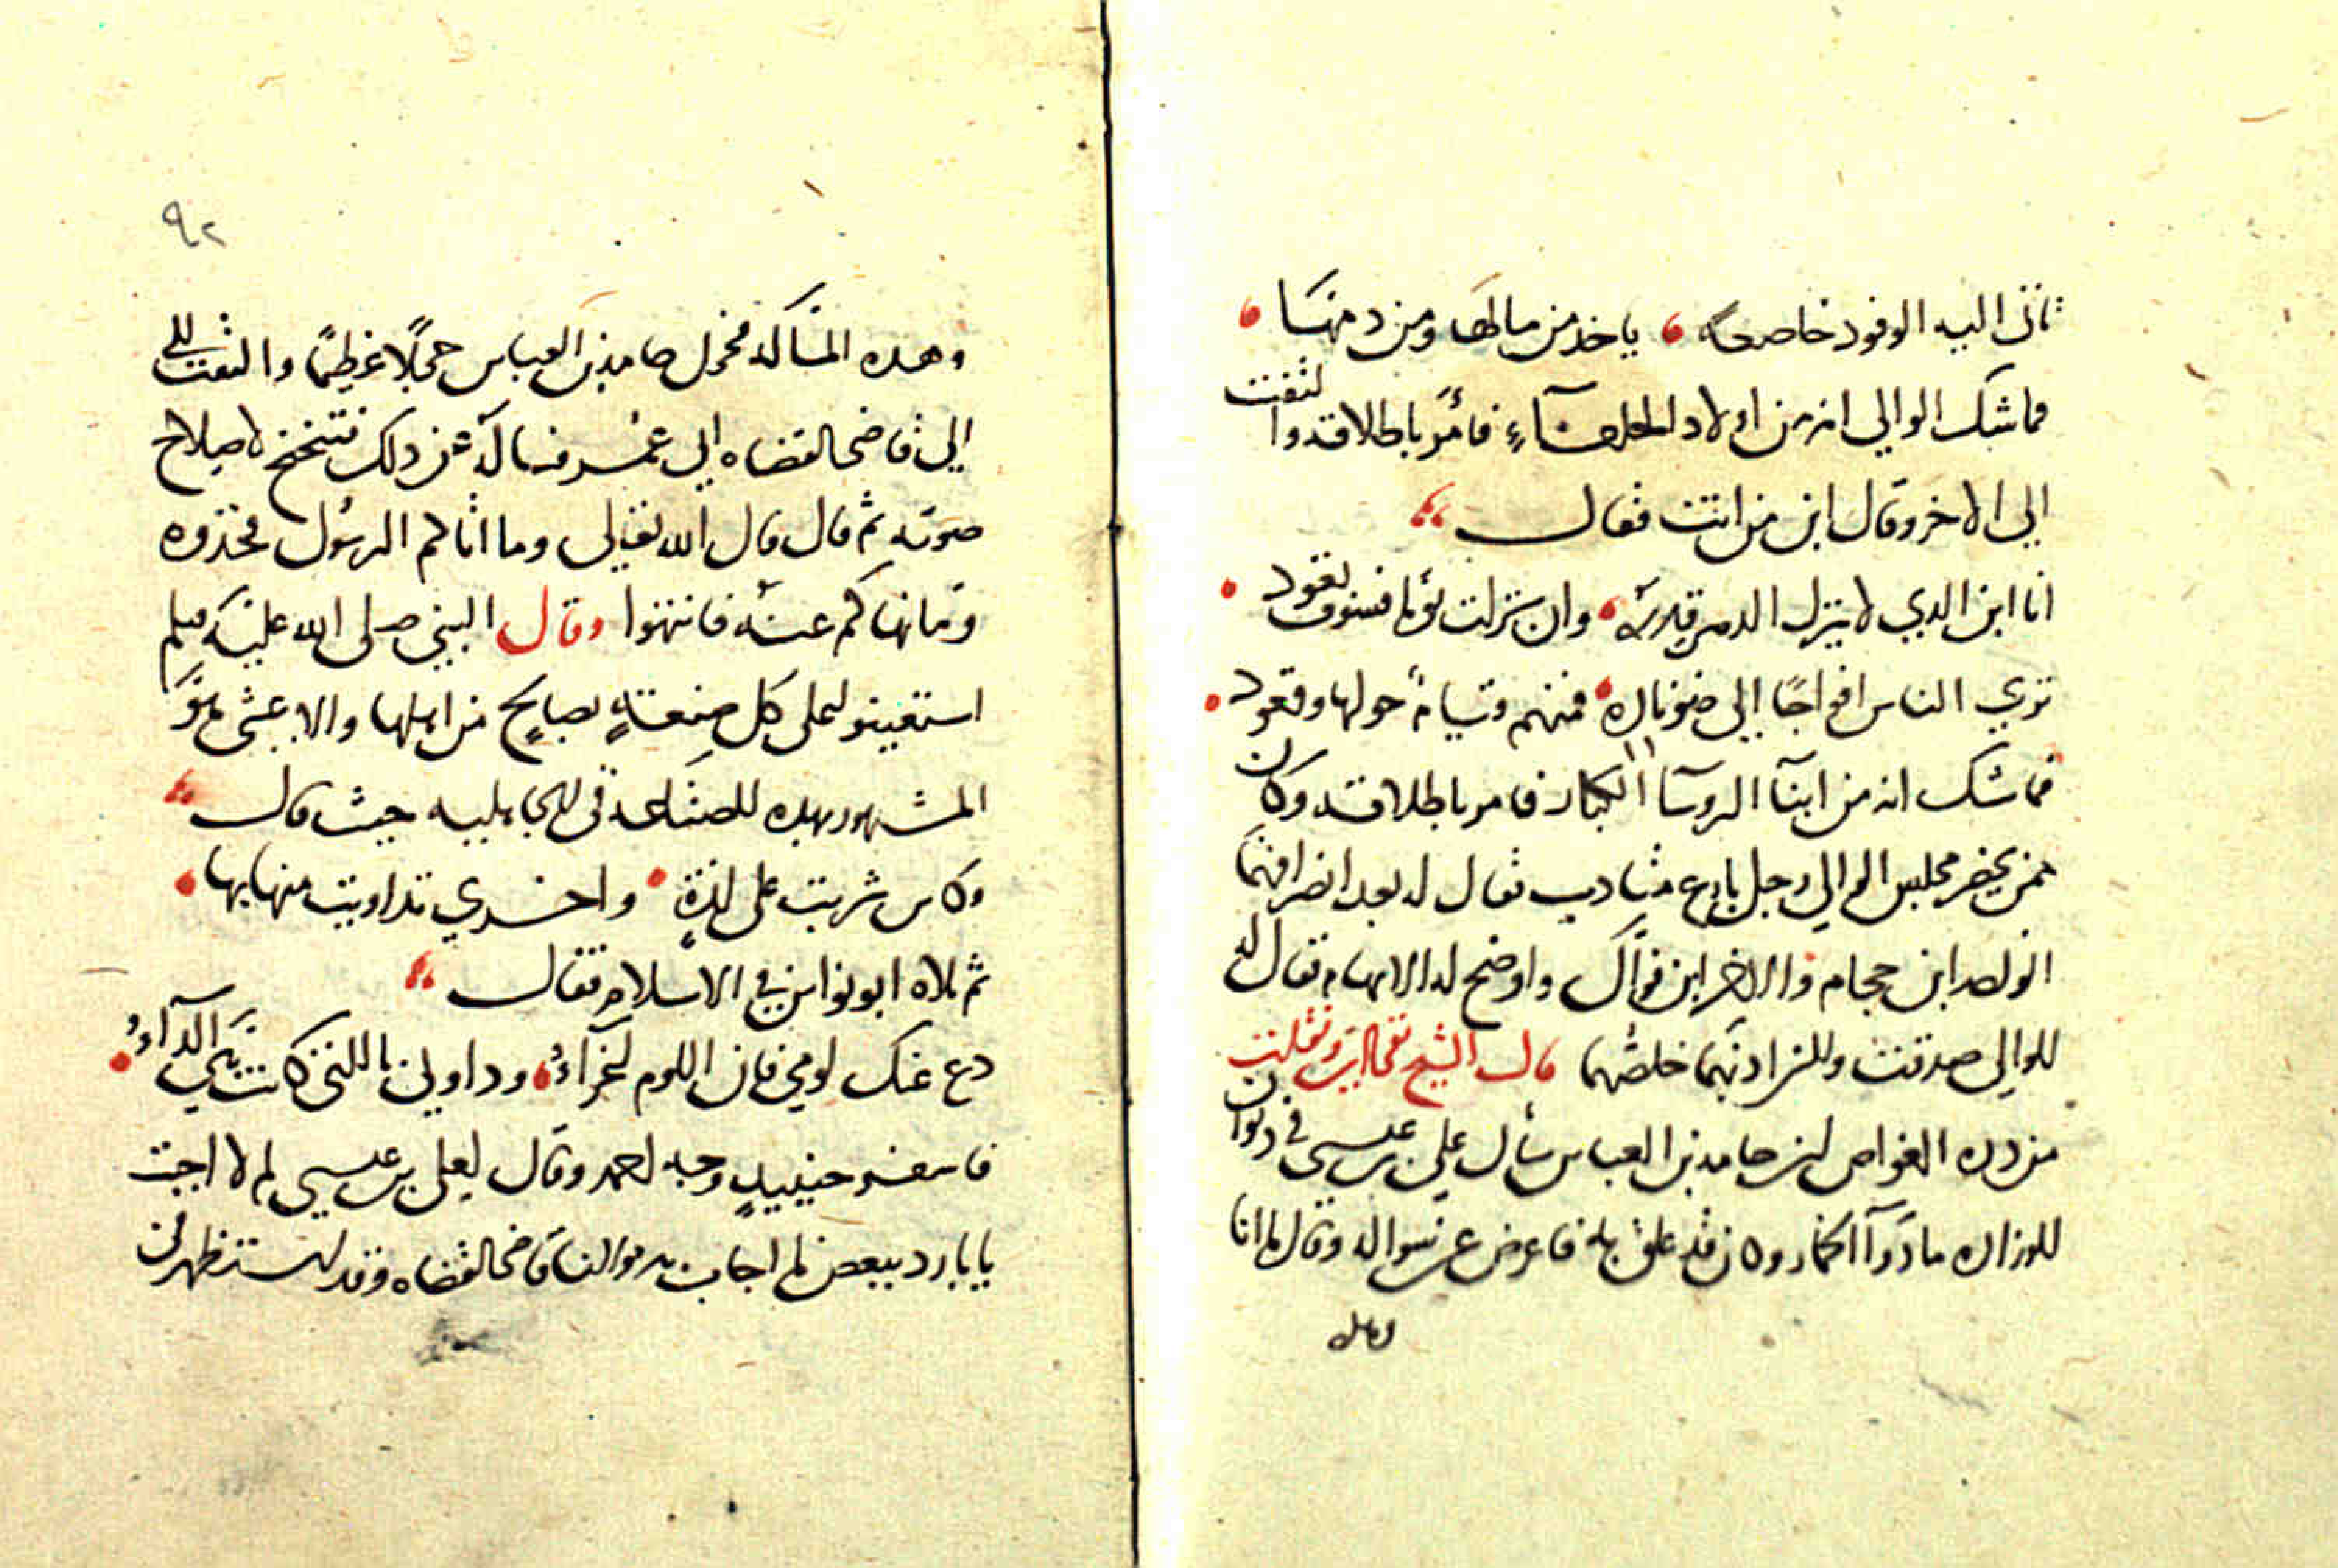 تاتى اليه الوفود خاضعه ، ياخد من مالها ومن دمها ،
فما شك الوالي انه من اولاد الخلفآء فأمر باطلاقه والتفت
الي الاخر وقال ابن من انت فقال
انا ابن الدي لا ينزل الدهر قدره ، وان نزلت يوما فسوف تعود
تري الناس افواجًا الي ضو ناره ، فمنهم قيام حولها وقعود
فما شك انه من ابنآ الروسآ الكبار فامر باطلاقه وكان
ممن يحضر مجلس الوالي رجل بارع متادب فقال له بعد انصرافهما
الواحد ابن حجام والاخر ابن فوال واوضح له الابهام فقال له
الوالي صدقت وللزادبهما خلصهما قال الشيخ تقي الدين ونقلت
من دره الغواص ان حامد بن العباس سأل علي بن عيسى في ديوان
الوزاره ما دوآ الخمار وكان قد علق به فاعرض عن سواله وقال ما انا
وهده
٩٢
وهده المسألة فخجل حامد بن العباس خجلًا عظيمًا والتفت
الي قاضي القضاه ابي عمر فسأله عن دلك فتنحنح لاصلاح
صوته ثم قال قال الله تعالى وما اتاكم الرسول فخذوه
وما نهاكم عنه فانتهوا وقال النبي صلى الله عليه وسلم
استعينو على كل صنعة بصالح من اهلها والاعشى هو
المشهور بهده الصناعه في الجاهليه حيث قال
وكاس شربت على لذة ، واخري تداويت منها بها
ثم تلاه ابو نواس في الاسلام فقال
دع عنك لومي فان اللوم اغرآء ، وداوني بالتي كانت هي الدآء
فاسفر حينييد وجه حامد وقال لعلي بن عيسي لم لا اجبت
يا بارد ببعض ما اجاب به مولانا قاضي القضاه وقد استظهر في